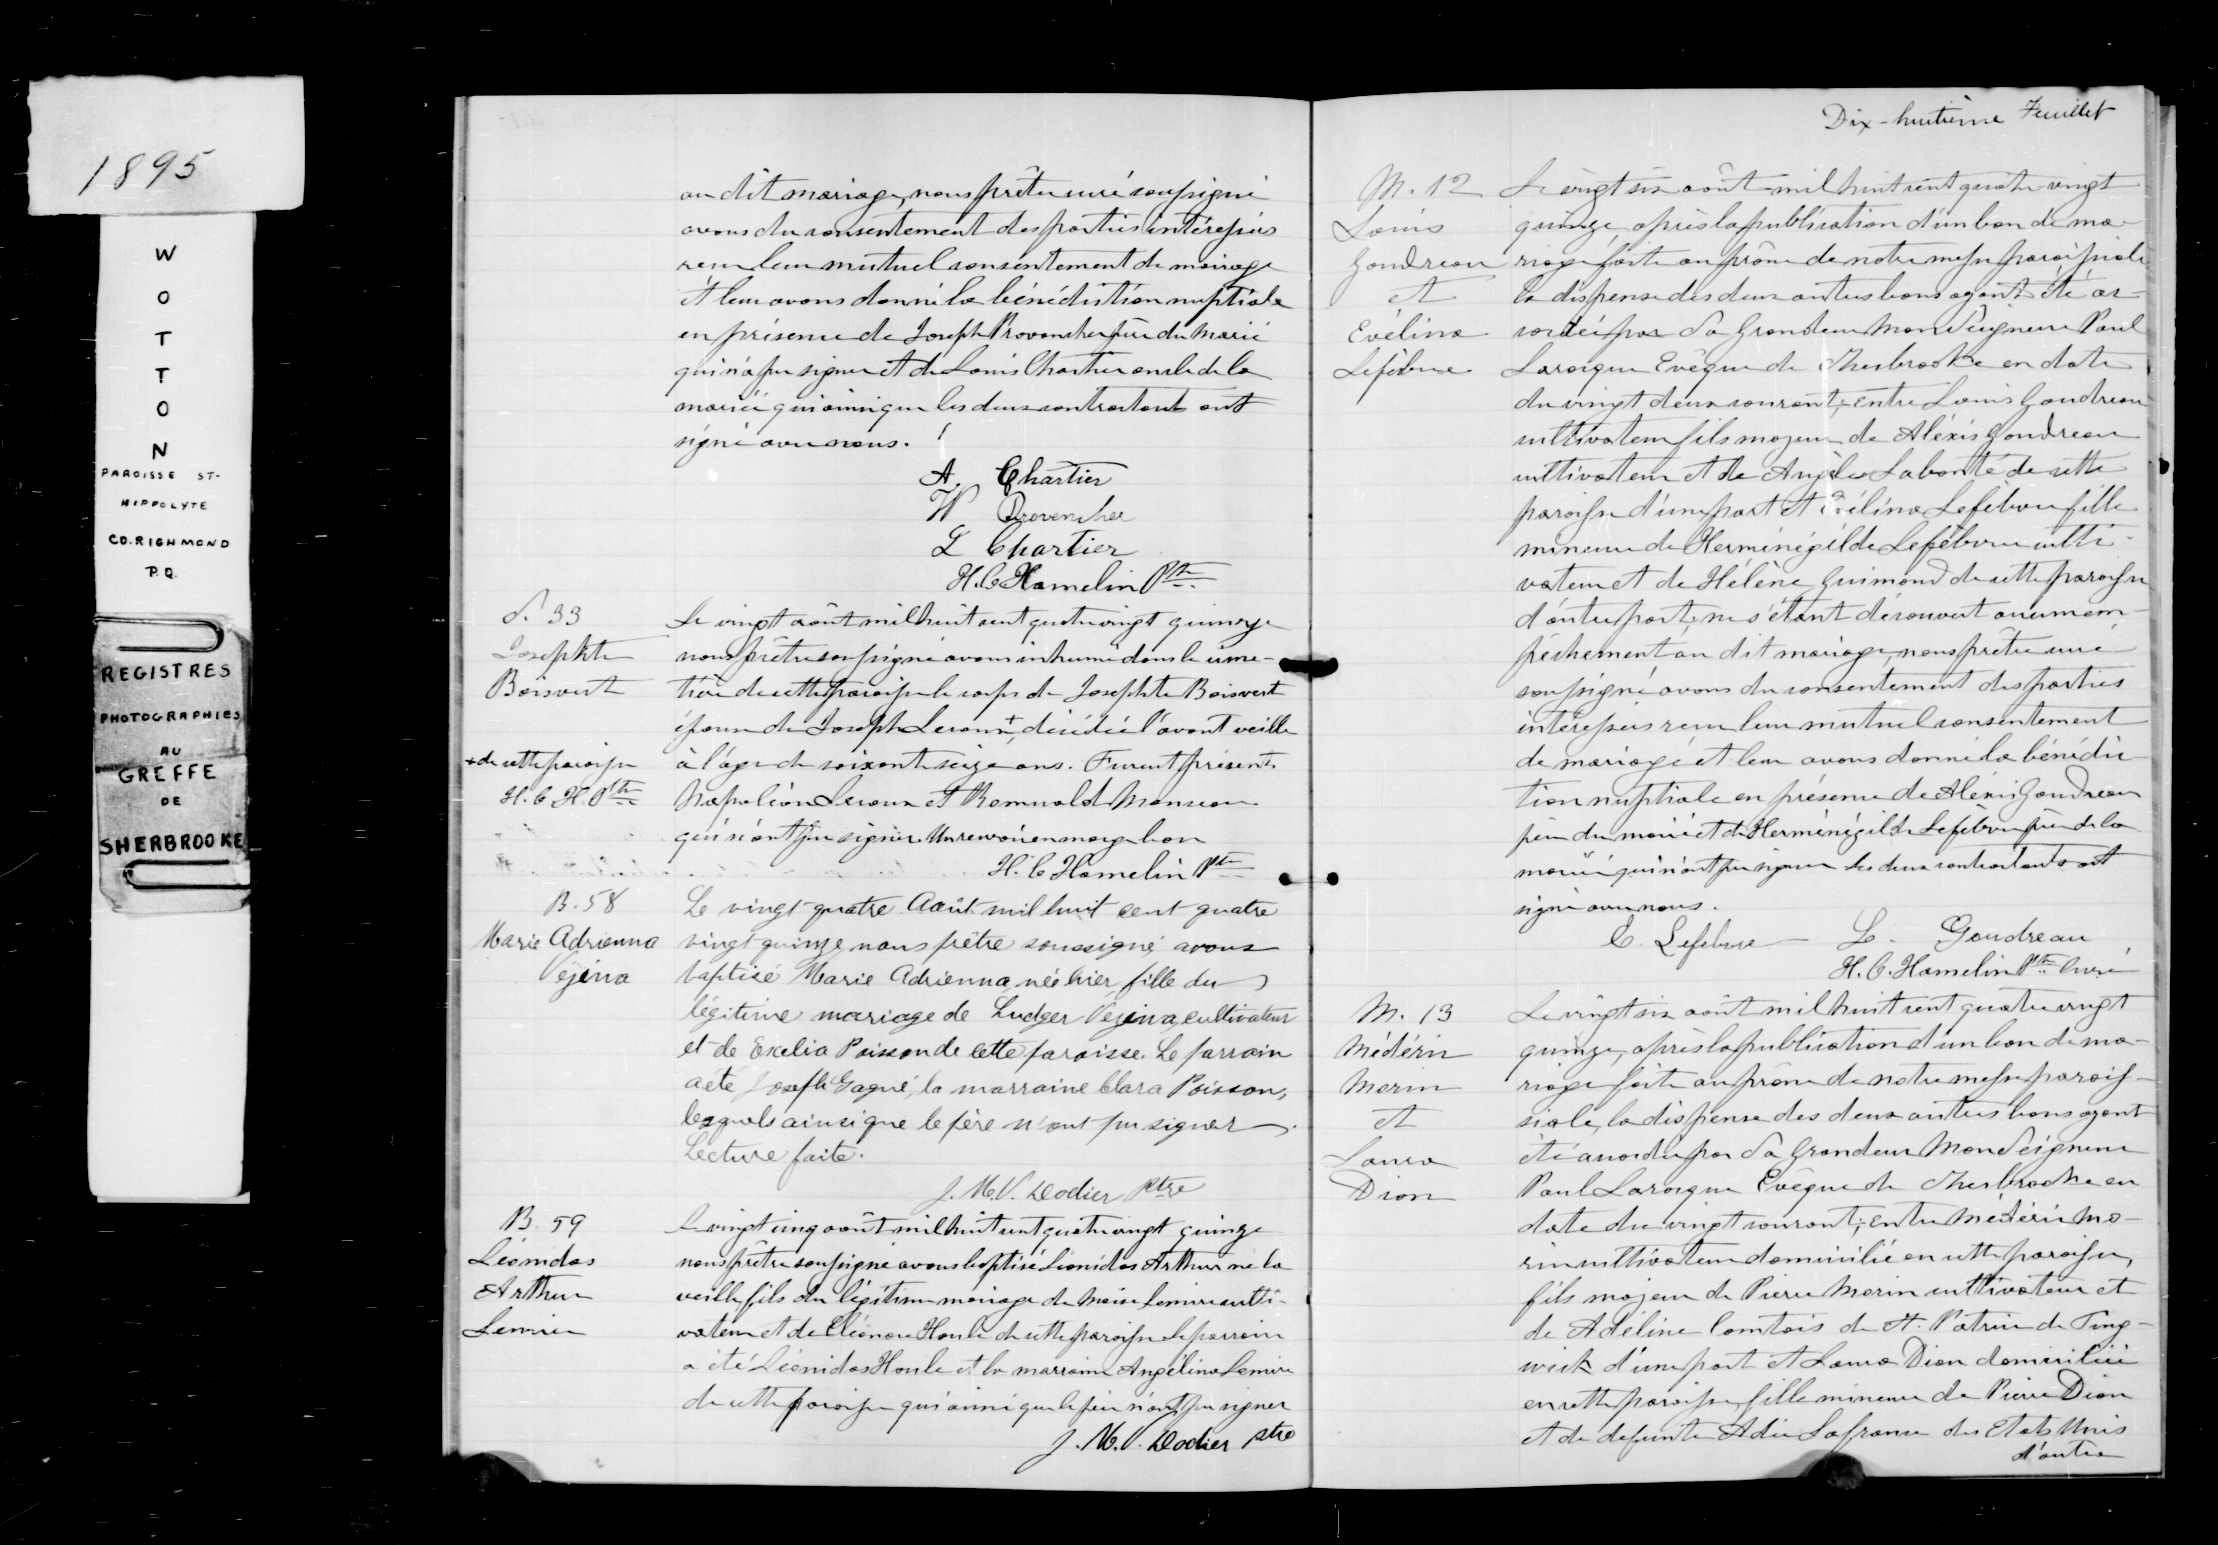 1895
W
O
T
T
O
N
PAROISSE ST-
HIPPOLYTE
CO. RICHMOND
P.Q.
REGISTRES
PHOTOGRAPHIES
AU
GREFFE
DE
SHERBROOKE
au dit mariage, nous prêtre curé soussigné
avons du consentement des parties intéressées
reçu leur mutuel consentement de mariage
et leur avons donné la bénédiction nuptiale
en présence de Joseph Provencher père du marié
qui n'a pu signer et de Louis Chartier oncle de la
mariée qui ainsi que les deux contractants ont
signé avec nous.
A. Chartier
W Provencher
L Chartier
H. C Hamelin Ptre
S. 33
Josephte
Boisvert
+ de cette paroisse
H. C H. Ptre
Le vingt août mil huit cent quatre vingt quinze
nous prêtre soussigné avons inhumé dans le cime-
tière de cette paroisse le corps de Josephte Boisvert
épouse de Joseph Leroux +, décédée l'avant veille
à l'âge de soixante seize ans. Furent présents
Napoléon Leroux et Romuald Manseau
qui n'ont pu signer. Un renvoi en marge bon
H. C Hamelin Ptre
B. 58
Marie Adrienna
Vézina
Le vingt quatre Août mil huit cent quatre
vingt quinze nous prêtre soussigné avons
baptisé Marie Adrienna, née hier, fille du
légitime mariage de Ludger Vézina, cultivateur
et de Exelia Poisson de cette paroisse. Le parrain
a été Joseph Gagné, la marraine Clara Poisson,
lesquels ainsi que le père n'ont pu signer.
Lecture faite.
J. M. V. Dodier Ptre
B. 59
Léonidas
Arthur
Lemire
Le vingt cinq août mil huit cent quatre vingt quinze
nous prêtre soussigné avons baptisé Léonidas Arthur né la
veille, fils du légitime mariage de Moïse Lemire culti-
vateur et de Eléonore Houle de cette paroisse. Le parrain
a été Léonidas Houle et la marraine Angélina Lemire
de cette paroisse qui ainsi que le père n'ont pu signer
J. M. V. Dodier ptre
Dix-huitième Feuillet
M. 12
Louis
Goudreau
et
Evélina
Lefebvre
Le vingt six août mil huit cent quatre vingt
quinze, après la publication d'un ban de ma-
riage faite au prône de notre messe paroissiale
la dispense des deux autres bans ayant été ac-
cordée par Sa Grandeur Monseigneur Paul
Larocque Evêque de Sherbrooke en date
du vingt deux courant; entre Louis Goudreau
cultivateur fils majeur de Alexis Goudreau
cultivateur et de Angèle Labonté de cette
paroisse d'une part et Evélina Lefebvre fille
mineure de Herménégilde Lefebvre culti-
vateur et de Hélène Guimond de cette paroisse
d'autre part; ne s'étant découvert aucun em-
pêchement au dit mariage, nous prêtre curé
soussigné avons du consentement des parties
intéressées reçu leur mutuel consentement
de mariage et leur avons donné la bénédic
tion nuptiale en présence de Alexis Goudreau
père du marié et de Herménégilde Lefebvre père de la
mariée qui n'ont pu signer. Les deux contractants ont
signé avec nous.
E. Lefebvre L. Goudreau
H. C. Hamelin Ptre Curé
M. 13
Médéric
Morin
et
Laura
Dion
Le vingt six août mil huit cent quatre vingt
quinze, après la publication d'un ban de ma-
riage faite au prône de notre messe parois-
siale, la dispense des deux autres bans ayant
été accordée par Sa Grandeur Monseigneur
Paul Larocque Evêque de Sherbrooke en
date du vingt courant; entre Médéric Mo-
rin cultivateur domicilié en cette paroisse,
fils majeur de Pierre Morin cultivateur et
de Adéline Comtois de St. Patrice de Ting-
wick d'une part et Laura Dion domiciliée
en cette paroisse, fille mineure de Pierre Dion
et de défunte Adée Lafrance des Etats Unis
d'autre